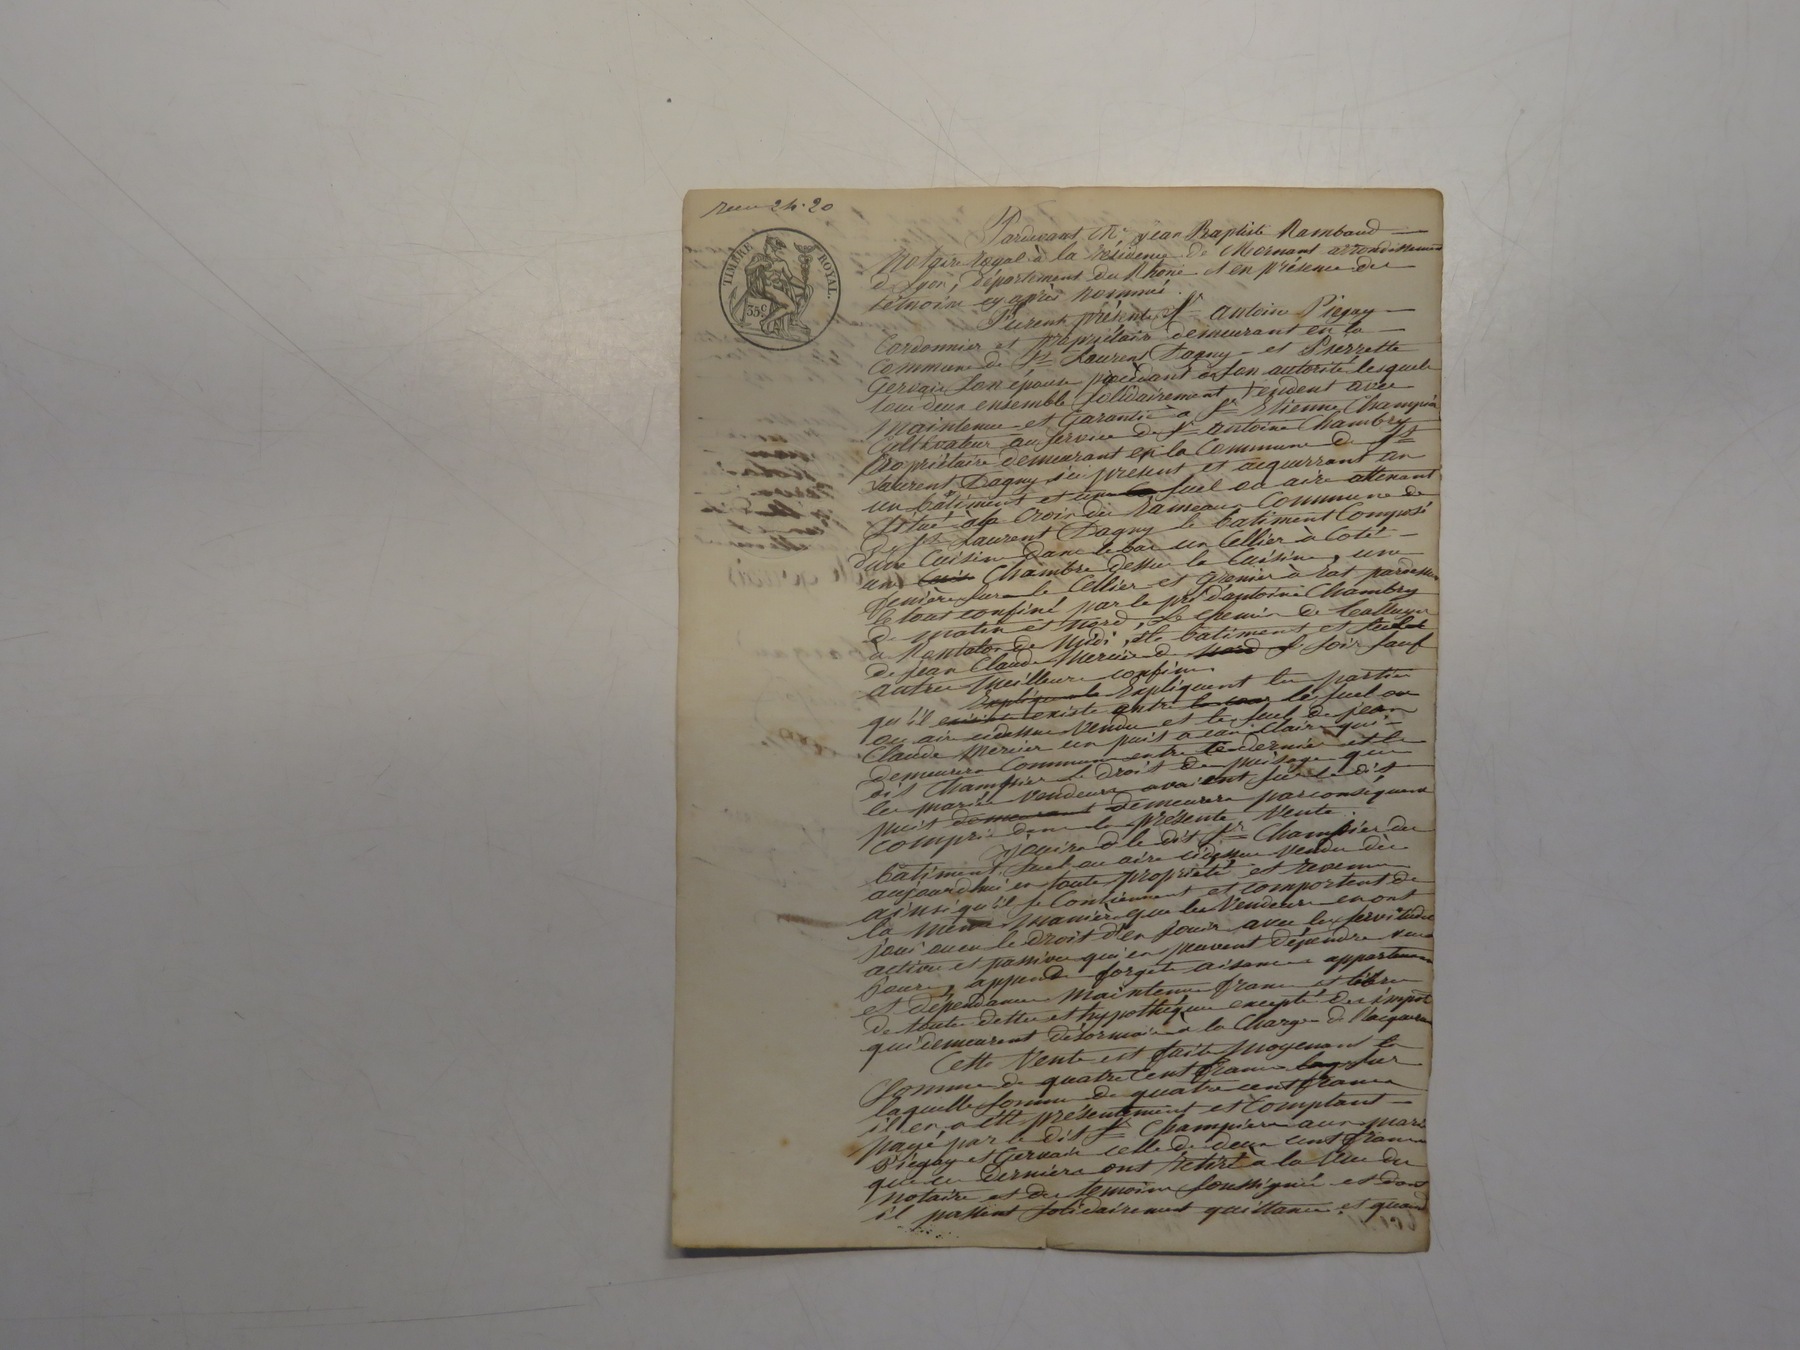 reçu 24.20
TIMBRE ROYAL.
35c
Pardevant Me jean Baptiste Rambaud
Notaire royal à la résidence de Mornant arrondissement
de Lyon, département du Rhône et en présence des
témoins cy après nommés.
Furent présents Sr antoine Piegay
Cordonnier et propriétaire demeurant en la
Commune de St Laurent Dagny et Pierrette
Gervais son épouse procédant de son autorité lesquels
tous deux ensemble solidairement vendent avec
Maintenue et Garantie à Sr Etienne Champier
Cultivateur au service de Sr antoine Chambry
propriétaire demeurant en la Commune de St
Laurent Dagny ici present et acquerrant
un bâtiment et un suel ou aire attenant
situé à la Croix du Rameau Commune de
St Laurent Dagny le batiment Composé
d'une Cuisine dans le bas un Cellier à Coté
une Chambre dessus la Cuisine, une
fenière sur le Cellier et grenier à rat pardessus
le tout confiné par le pré d'antoine Chambry
de matin et nord, le chemin de
à Montalon de Midi, le batiment et suel
de jean Claude Mercier de soir sauf
autres meilleurs confins.
Expliquent les parties
qu'il existe entre le suel ou
ou aire cidessus vendu et le suel de jean
Claude Mercier un puit à eau Claire qui
demeurera Commun entre ce dernier et le
dit Champier le droit de puisage que
les mariés vendeurs avaient sur le dit
puit demeurera parconséquent
compris dans la présente vente.
jouira le dit Sr Champier du
bâtiment, suel ou aire cidessus vendu dès
aujourdhui en toute propriété et revenus
ainsi qu'il se Contiennent et comportent de
la même manière que les Vendeurs en ont
joui ou eu le droit d'en jouir avec les servitudes
actives et passives qui en peuvent dépendre vues
jours, append forgets aisances appartenances
et dépendances maintenu franc et libre
de toutes dettes et hypothèques excepté des impôts
qui demeurent désormais à la Charge de l'acquereur
Cette Vente est faite moyenant la
Somme de quatre Cent francs sur
laquelle somme de quatre cent francs
il en a été présentement et Comptant
payé par le dit Sr Champier aux mariés
Piegay et Gervais celle de deux cent francs
que ces derniers ont retiré à la Vue du
notaire et des témoins soussignés et dont
il passent solidairement quittance, et quand